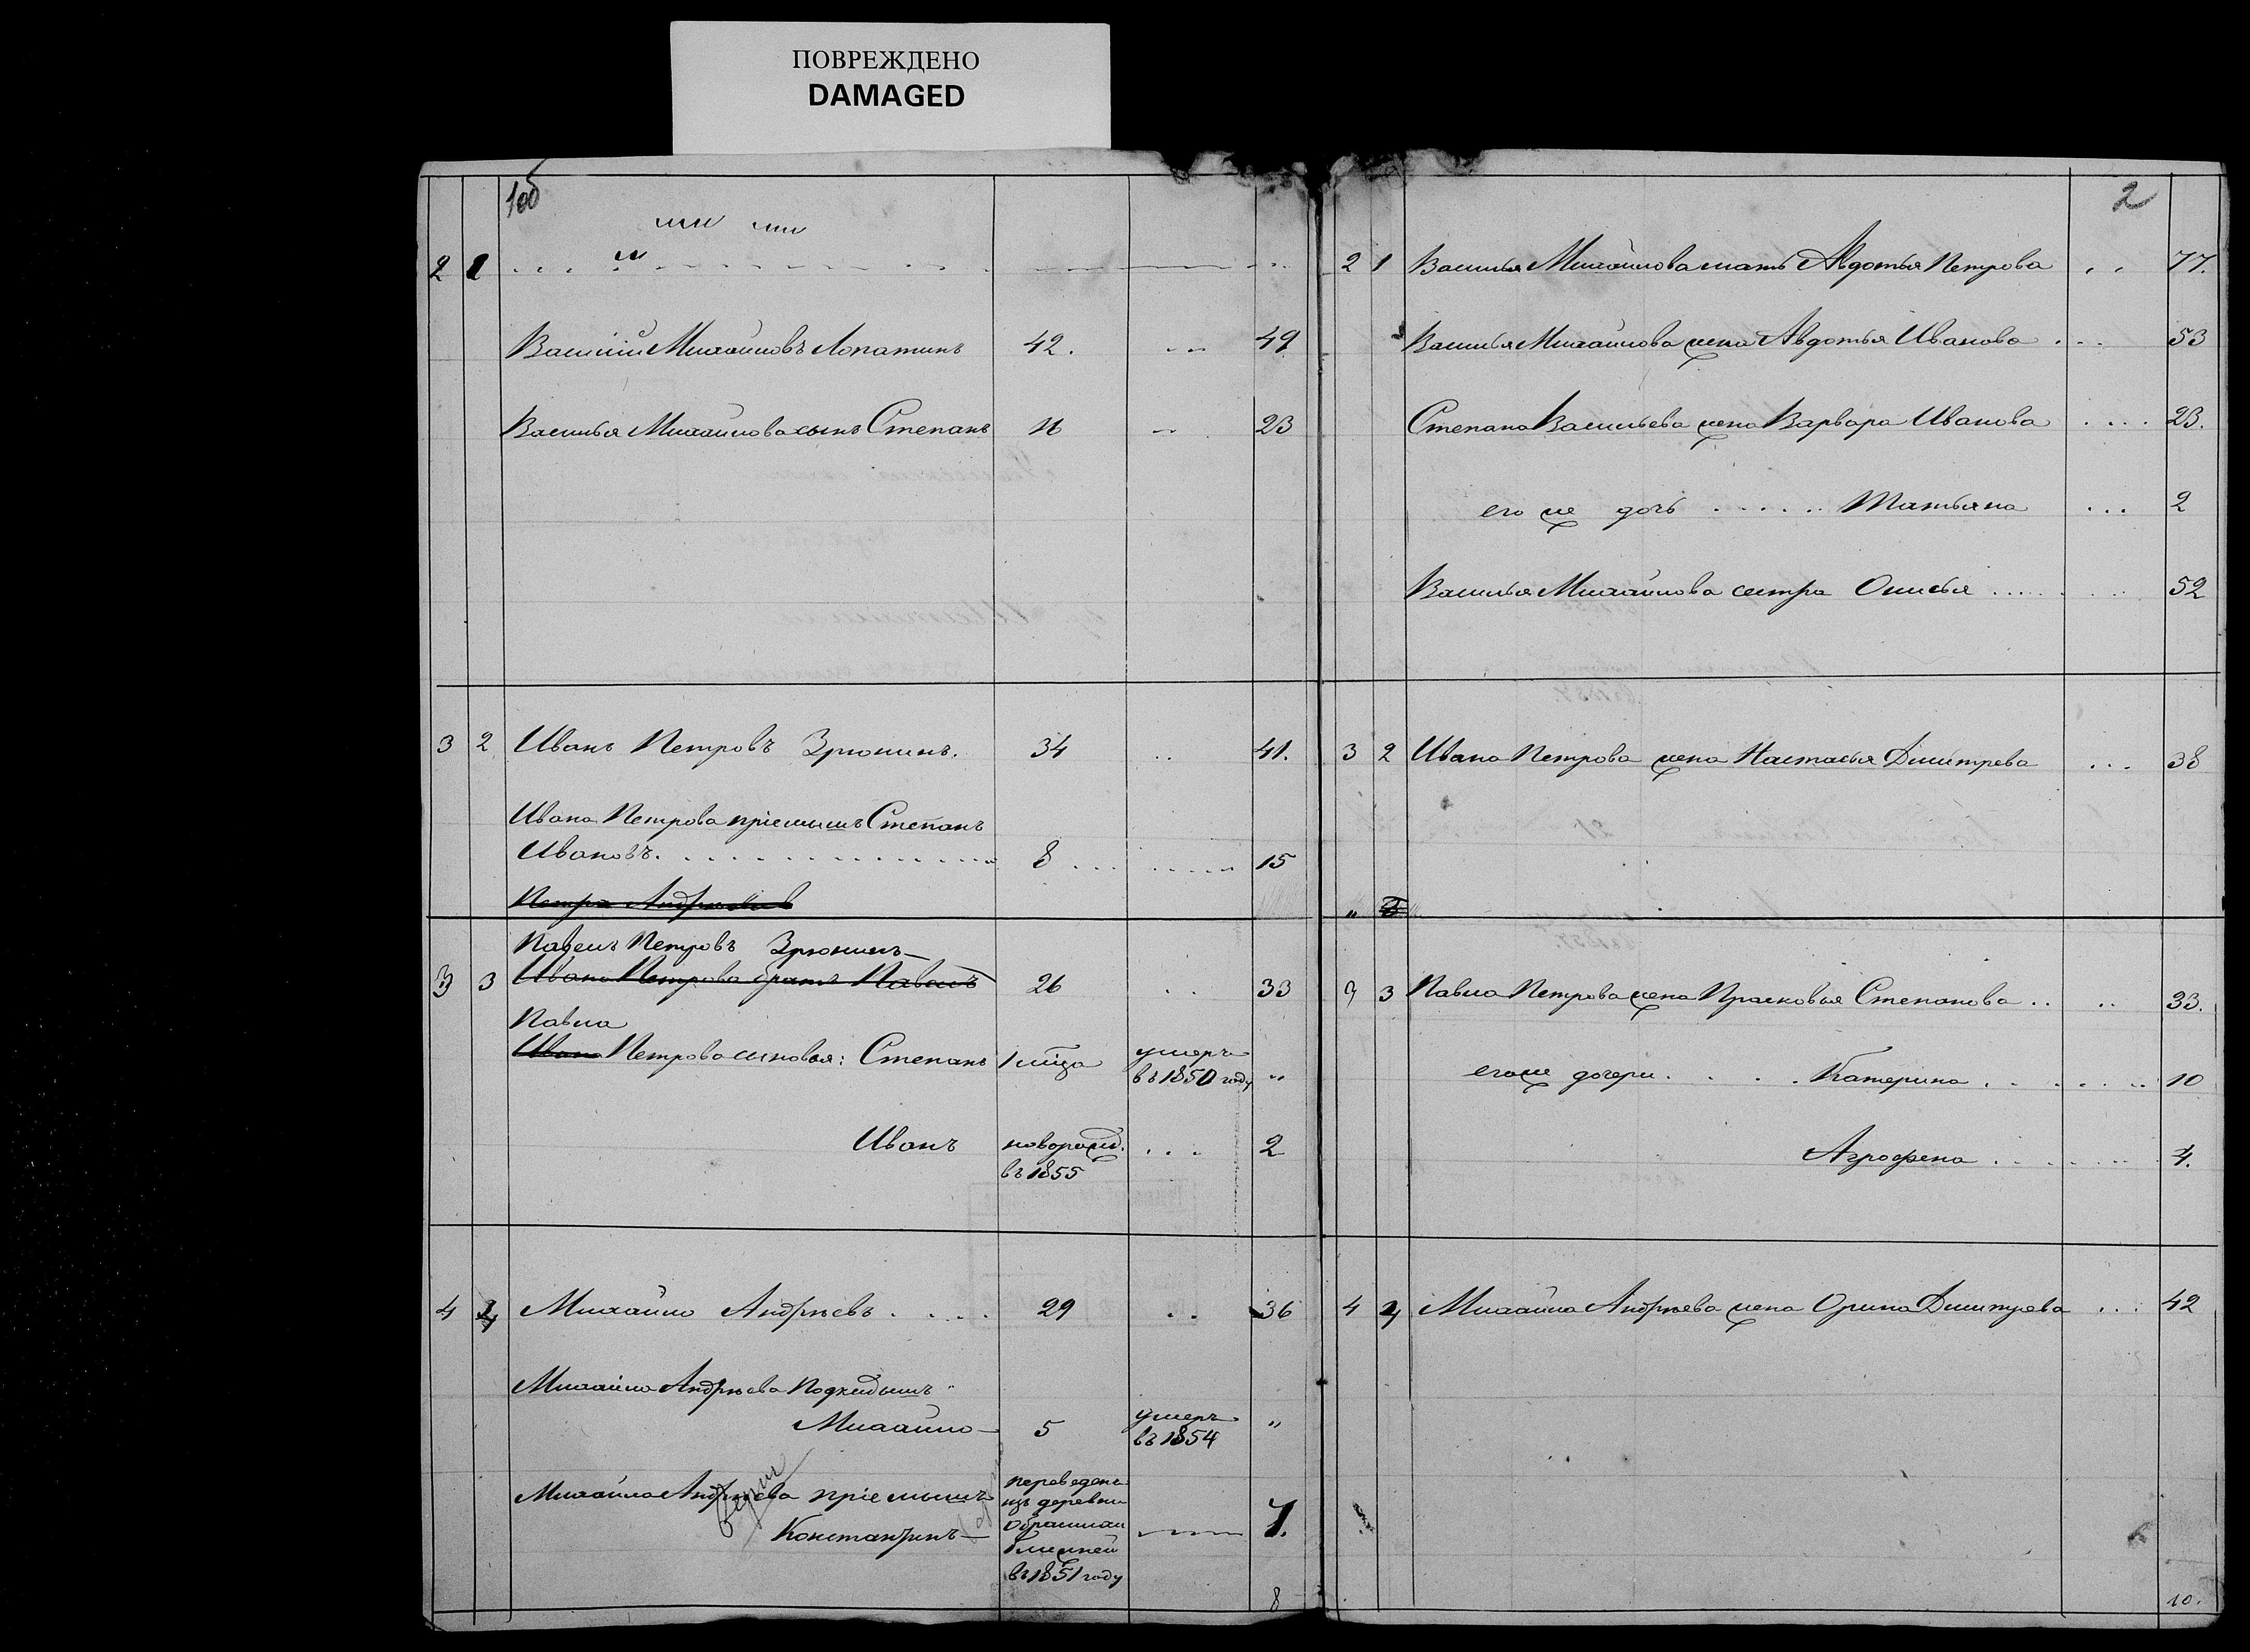 ПОВРЕЖДЕНО
DAMAGED
1об
2 1
Василій Михайловъ Лопатинъ 42. 49
Василья Михайлова сынъ Степанъ 16 23
3 2 Иванъ Петровъ Зрюнинъ. 34 41.
Ивана Петрова пріемышъ Степанъ
Ивановъ. 8 15
Петра Андреева
Павелъ Петровъ Зрюнинъ
3 3 Ивана Петрова братъ Павелъ 26 33
Павла
Ивана Петрова сыновья: Степанъ 1 умеръ въ 1850 году "
Иванъ новорожд. въ 1855 2
4 4 Михайло Андреевъ 29 36
Михайла Андреева подкидышъ
Михайло 5 умеръ въ 1854 "
Михайла Андреева пріемышъ
Константинъ переведенъ
изъ деревни
въ 1851 году
7.
8
2
2 1 Василья Михайлова мать Авдотья Петрова 77.
Василья Михайлова жена Авдотья Иванова 53
Степана Васильева жена Варвара Иванова 23.
его же дочь Татьяна 2
Василья Михайлова сестра 52
3 2 Ивана Петрова жена Настасья Дмитрева 38
"
3 Павла Петрова жена Прасковья Степанова 33.
его же дочери Катерина 10
Аграфена 4.
4 4 Михайла Андреева жена Орина Дмитрева 42
10.